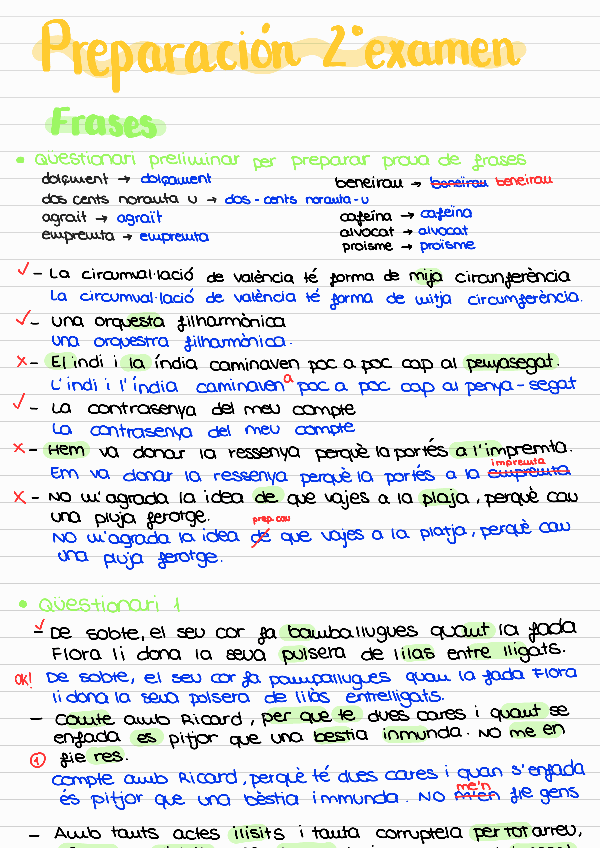 Preparación 2º examen
Frases
• Qüestionari preliminar per preparar prova de frases
dolçment → dolçament
beneirau → beneïrau beneirau
dos cents noranta u → dos-cents noranta-u
agrait → agraït
cafeina → cafeïna
empremta → empremta
alvocat → alvocat
proisme → proïsme
✓ - La circumval·lació de valència té forma de mija circunferència
La circumval·lació de valència té forma de mitja circumferència.
✓ - una orquesta filharmònica
una orquestra filharmònica.
x - El indi i la índia caminaven poc a poc cap al penyasegat.
L'indi i l'índia caminaven a poc a poc cap al penya-segat
✓ - La contrasenya del meu compte
La contrasenya del meu compte
x - Hem va donar la ressenya perquè la portés a l'impremta.
Em va donar la ressenya perquè la portés a la empremta impremta
x - No m'agrada la idea de que vajes a la plaja, perquè cau
una pluja ferotge.
prep. cau
No m'agrada la idea de que vajes a la platja, perquè cau
una pluja ferotge.
• Qüestionari 1
✓ - De sobte, el seu cor fa bamballugues quant la fada
Flora li dona la seua pulsera de lilas entre lligats.
OK! De sobte, el seu cor fa pampallugues quan la fada Flora
li dona la seua polsera de lilàs entrelligats.
- Comte amb Ricard, per que te dues cares i quant se
enfada es pitjor que una bestia inmunda. No me en
1 fie res.
compte amb Ricard, perquè té dues cares i quan s'enfada
és pitjor que una bèstia immunda. No m'en me'n fie gens
- Amb tants actes ilisits i tanta corruptela per tot arreu,